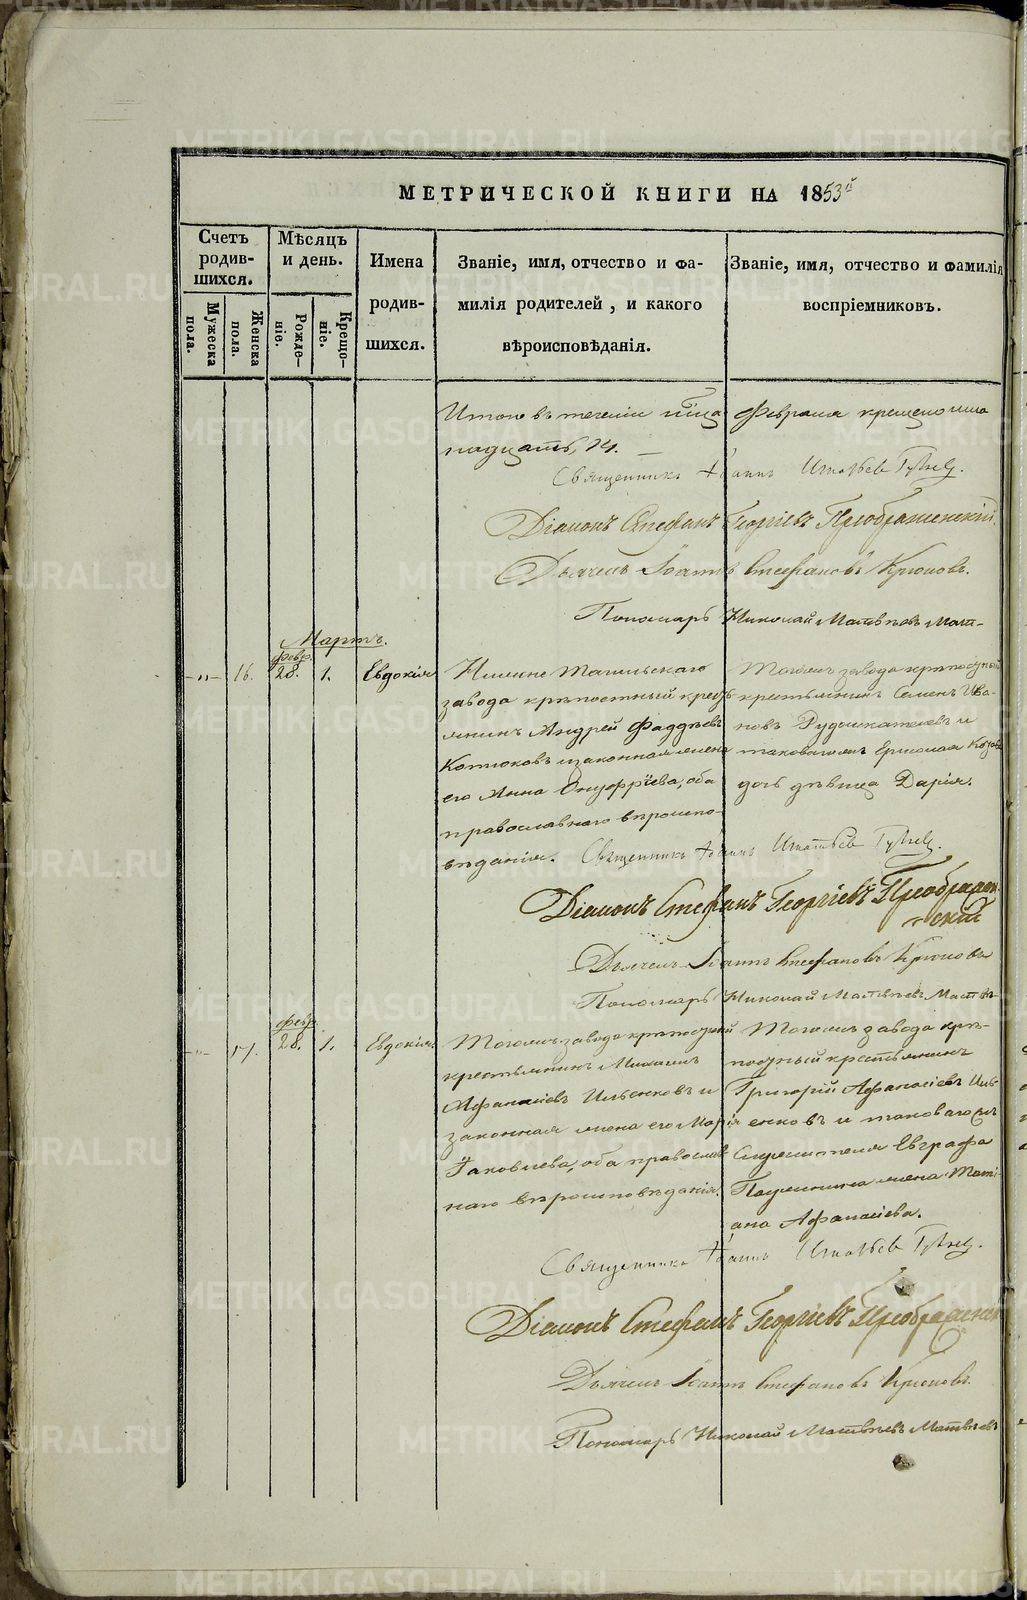 МЕТРИЧЕСКОЙ КНИГИ НА 1853й
Счетъ родив-шихся.
Мужеска пола.
Женска пола.
Мѣсяцъ и день.
Рожде-ніе.
Креще-ніе.
Имена родив-шихся.
Званіе, имя, отчество и фа-
милія родителей, и какого
вѣроисповѣданія.
Званіе, имя, отчество и фамилія
воспріемниковъ.
Итого въ теченіи м-ца Февраля крещено
надцать, 14.
Священникъ Іоаннъ Игнатьевъ
Діаконъ Стефанъ Георгіевъ Преображенскій.
Дьячекъ Іоаннъ Стефановъ Крюковъ.
Пономарь Николай Матвѣевъ Мат-
Мартъ.
февр.
-"- 16. 28. 1. Евдокія
Нижне Тагильскаго
завода крѣпостный кресть
янинъ Андрей Фаддѣевъ
Котюковъ и законная жена
его Анна Онуфріева, оба
православнаго вѣроиспо-
вѣданія.
Тогожъ завода крѣпостный
крестьянинъ Семенъ Ива-
новъ Рудощикателевъ и
таковагожъ Ермолая
дочь дѣвица Дарія.
Священникъ Іоаннъ Игнатьевъ
Діаконъ Стефанъ Георгіевъ Преображен-
скій
Дьячекъ Іоаннъ Стефановъ Крюковъ
Пономарь Николай Матвѣевъ Матвѣ-
февр.
-"- 17. 28. 1. Евдокія.
Тогожъ завода крѣпостный
крестьянинъ Михаилъ
Афанасіевъ Ильенковъ и
законная жена его Марія
Іаковлева, оба православ
наго вѣроисповѣданія.
Тогожъ завода крѣ-
постный крестьянинъ
Григорій Афанасіевъ Иль-
енковъ и таковагожъ
Евграфа
жена Тати-
ана Афанасіева.
Священникъ Іоаннъ Игнатьевъ
Діаконъ Стефанъ Георгіевъ Преображенскій
Дьячекъ Іоаннъ Стефановъ Крюковъ.
Пономарь Николай Матвѣевъ Матвѣевъ
METRIKI.GASO-URAL.RU